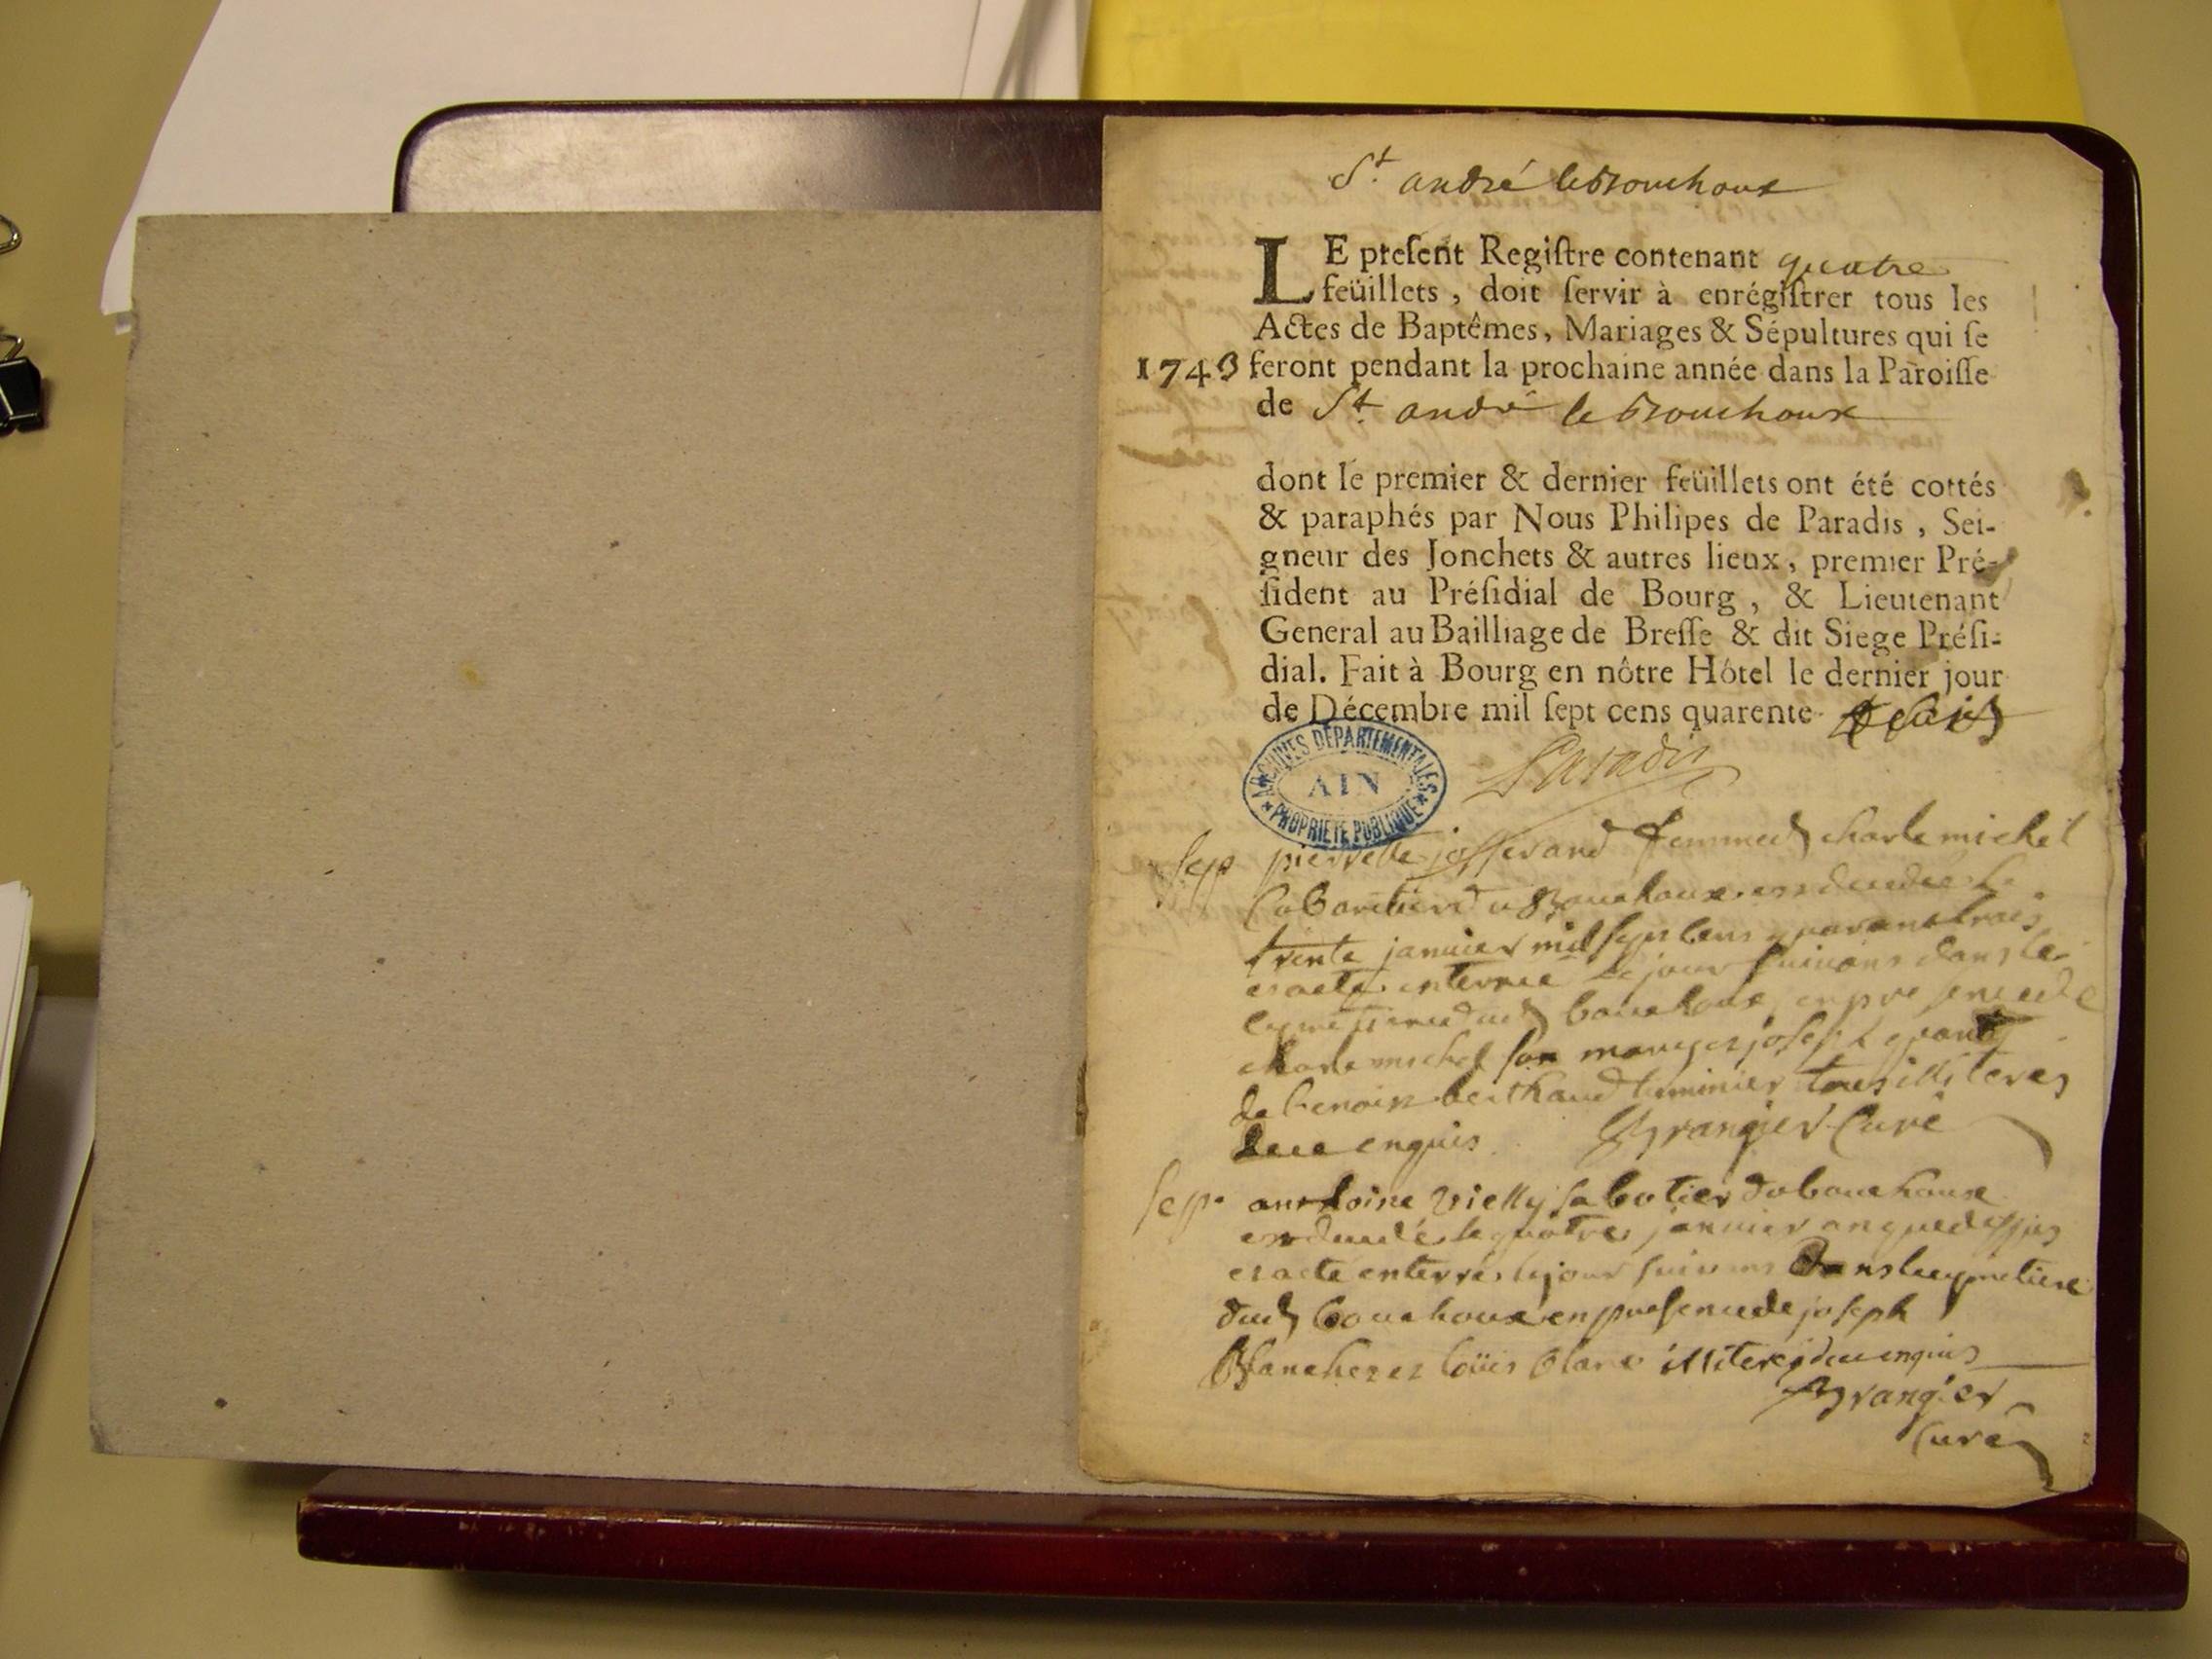 St. andré lebrouchoux
LE preſent Regiſtre contenant quatre
feüillets, doit ſervir à enrégiſtrer tous les
Actes de Baptêmes, Mariages & Sépultures qui ſe
1743 feront pendant la prochaine année dans la Paroiſſe
de St. andré le brouchoux
dont le premier & dernier feüillets ont été cottés
& paraphés par Nous Philipes de Paradis, Sei-
gneur des Jonchets & autres lieux, premier Pré-
ſident au Préſidial de Bourg, & Lieutenant
General au Bailliage de Breſſe & dit Siege Préſi-
dial. Fait à Bourg en nôtre Hôtel le dernier jour
de Décembre mil ſept cens quarente
Paradis
ARCHIVES DÉPARTEMENTALES
AIN
PROPRIÉTÉ PUBLIQUE
Sep pierrette josserand femme charle michel
Cabaretier du Bouchoux est decedée le
trente janvier mil sept cens quarante trois
et a ete enterree le jour suivans dans le
cymetiere dud bouchoux en presence de
charle michel son mary et joseph
de benoist berthaud luminier tous illiteres
de ce enquis Grangier Curé
Sep. anthoine vielly sabotier du bouchoux
est decedé le quatre janvier an que dessus
et a ete enterré le jour suivans dans le cymetiere
dud bouchoux en presence de joseph
blanchet et loüis blanc illiteres de ce enquis
Grangier
Curé